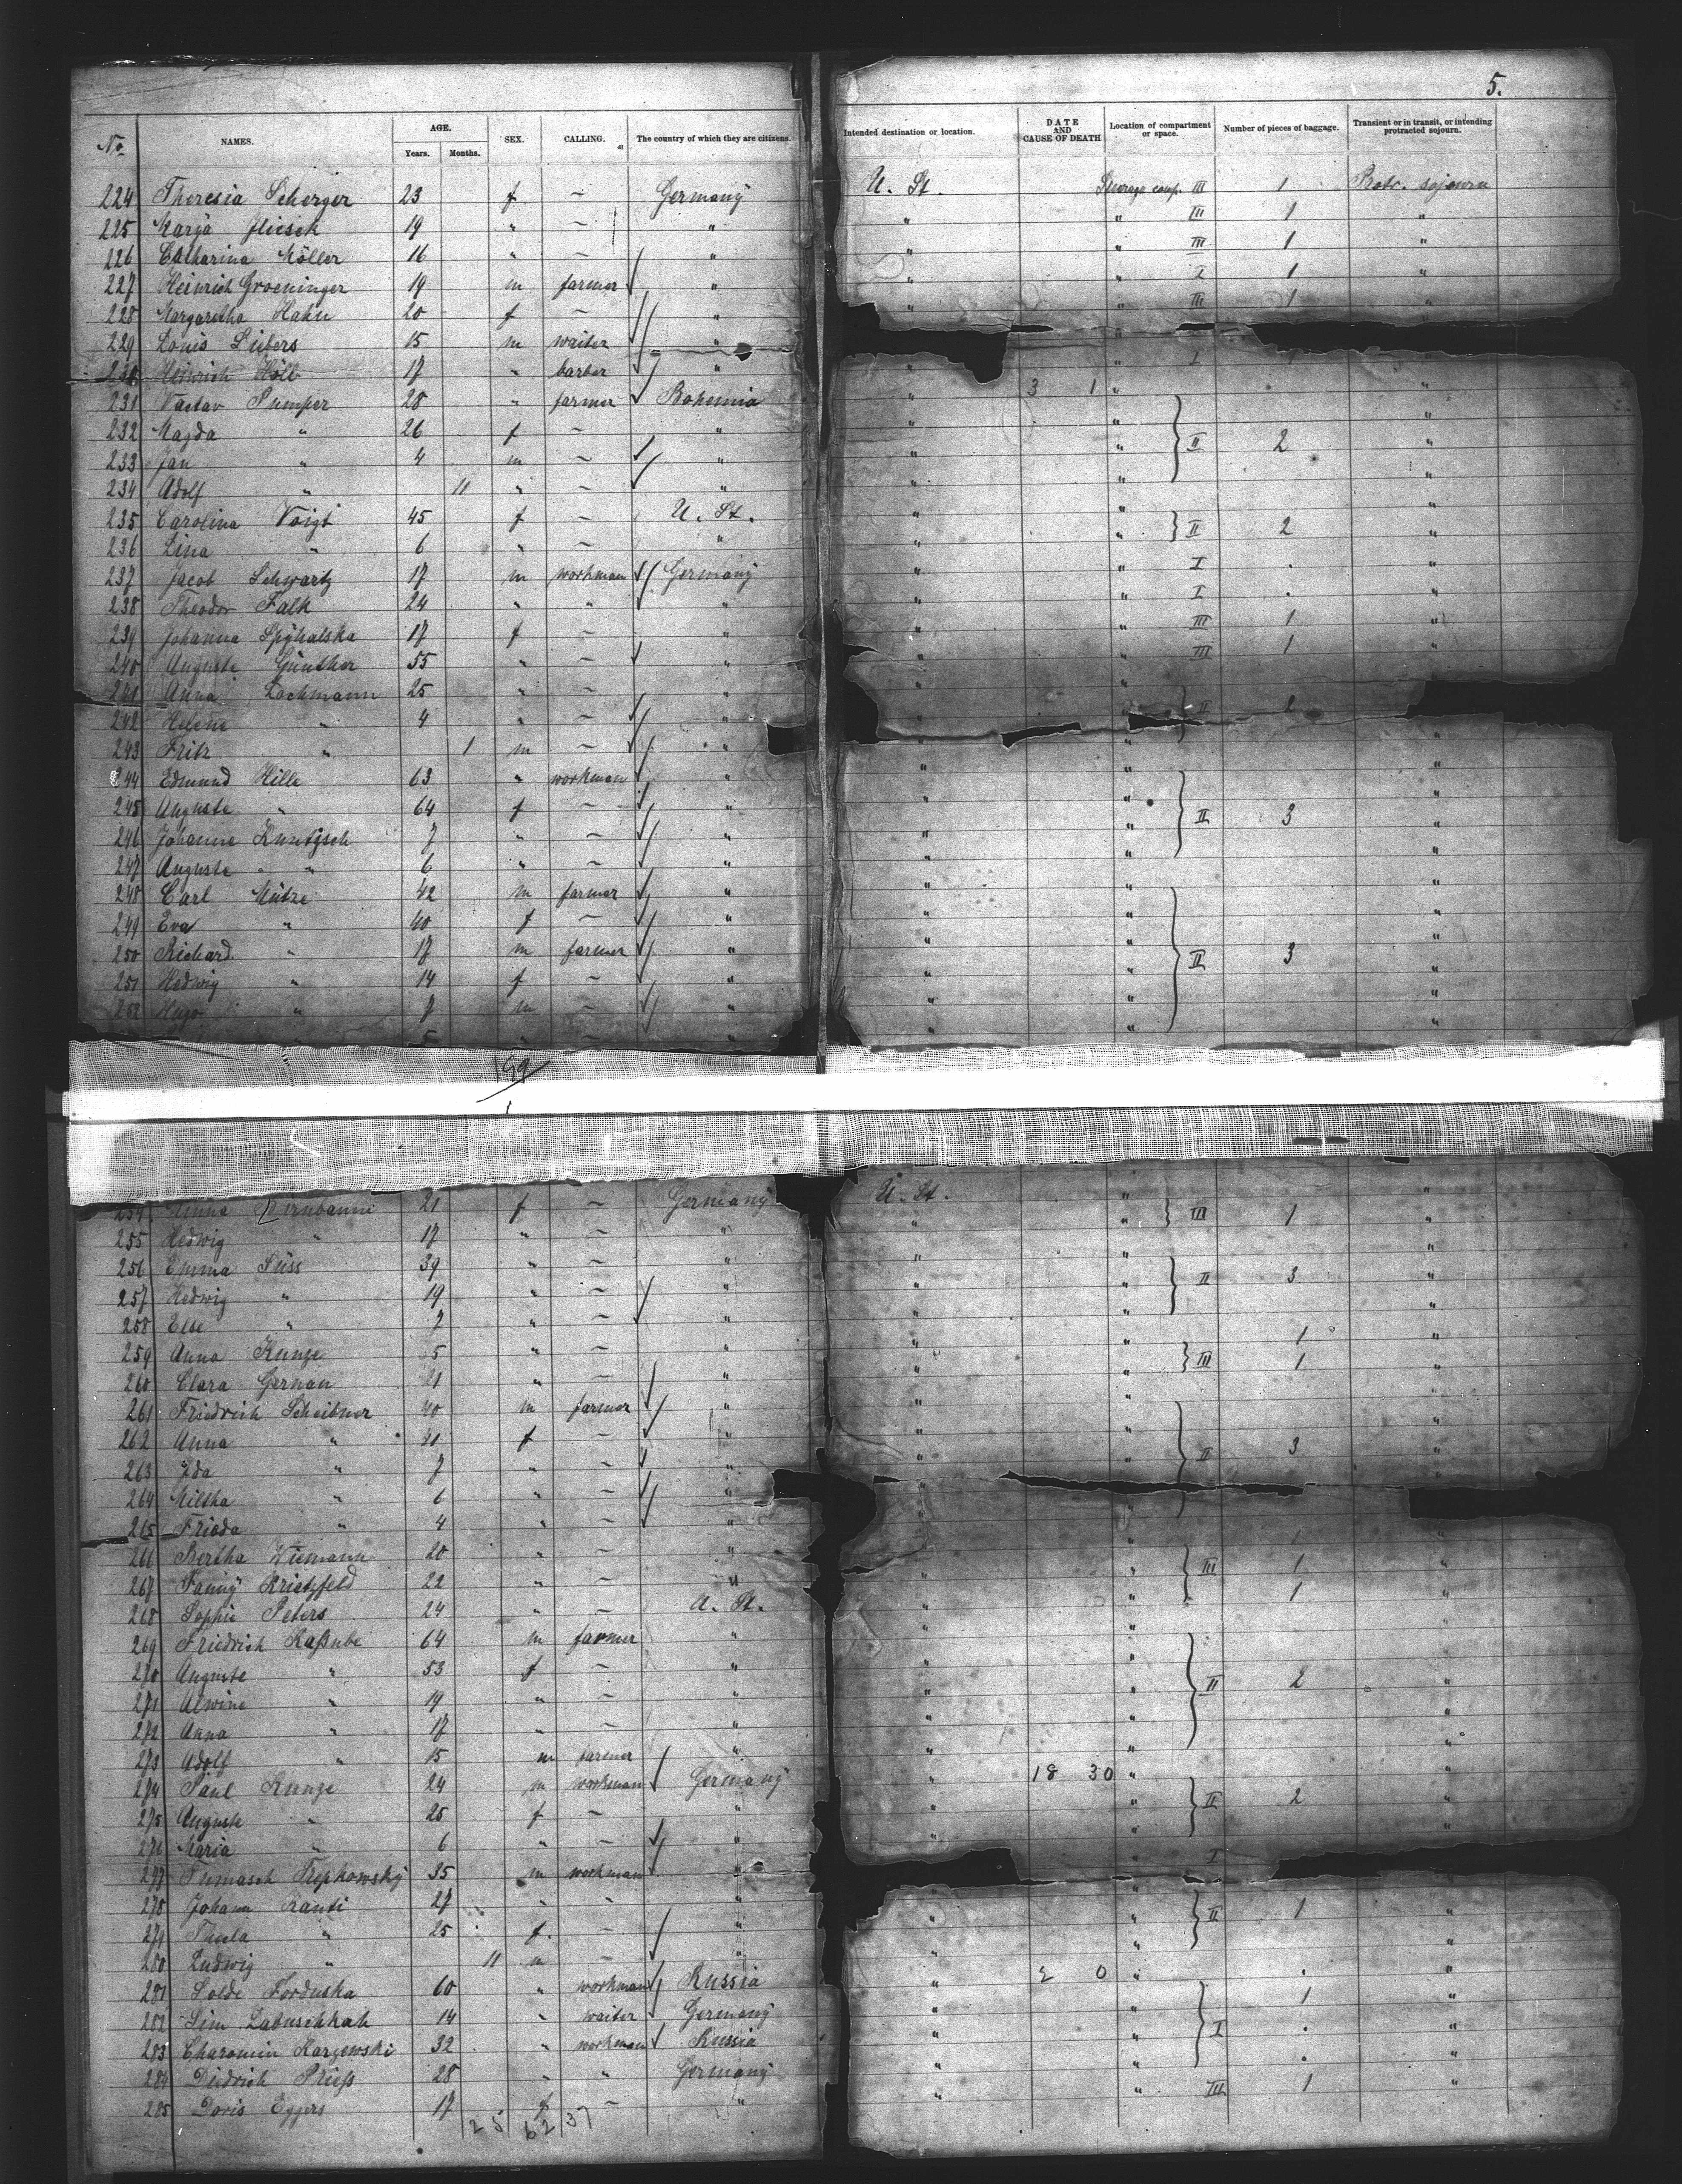 5.
No. NAMES. AGE. Years. Months. SEX. CALLING. The country of which they are citizens. Intended destination or location. DATE AND CAUSE OF DEATH Location of compartment or space. Number of pieces of baggage. Transient or in transit, or intending protracted sojourn.
224 Theresia Scherger 23 f – Germany U. St. Steerage comp. III 1 Protr. sojourn
225 Marya 19 " – " " " III 1 "
226 Catharina Möller 16 " – " " " III 1 "
227 Heinrich Groeninger 19 m farmer " " " I 1 "
228 Margaretha Hahn 20 f – " " " III 1 "
229 Louis Liebers 15 m waiter "
Heinrich Höll 17 " barber " " " I
231 Vaclav Pumper 28 " farmer Bohemia " 3 1 " "
232 Magda " 26 f – " " " "
233 Jan " 4 m – " " " II 2 "
234 Adolf " 11 " – " " "
235 Carolina Voigt 45 f – U. St. " " "
236 Lina " 6 " – " " " II 2 "
237 Jacob Schwartz 17 m workman Germany " " I . "
238 Theodor Falk 24 " " " " " I . "
239 Johanna Spyhalska 17 f – " " " III 1 "
240 Auguste Günther 55 " – " " " III 1 "
241 Anna Lochmann 25 " – " " "
242 Helene " 4 " – " " II 2
243 Fritz " 1 m – " " " "
244 Edmund Hille 63 " workman " " " "
245 Auguste " 64 f – " " " II 3 "
246 Johanne Kuntzsch 7 " – " " " "
247 Auguste " 6 " – " " " "
248 Carl Mütze 42 m farmer " " " "
249 Eva " 40 f – " " " "
250 Richard " 17 m farmer " " " II 3 "
251 Hedwig " 14 f – " " " "
252 Hugo " 7 m – " " " "
" 5 " – "
199
1
254 21 f – Germany U. St. " III 1 "
255 Hedwig " 17 " – " " " "
256 Emma Süss 39 " – " " " II 3 "
257 Hedwig " 19 " – " " " "
258 Else " 7 " – " " " 1 "
259 Anna Kunze 5 " – " " " III 1 "
260 Clara Gernan 21 " – " " " "
261 Friedrich Scheibner 40 m farmer " " " "
262 Anna " 41 f – " " " II 3 "
263 Ida " 7 " – " "
264 " 6 " – " "
265 Frieda " 4 " – " " 1
266 Bertha Wiemann 20 " – " " " III 1 "
267 Fanny 22 " – " " " 1 "
268 Sophie Peters 24 " – U. St. " " "
269 Friedrich Kaßube 64 m farmer " " " "
270 Auguste " 53 f – " " " II 2 "
271 Alwine " 19 " – " " " "
272 Anna " 17 " – " " " "
273 Adolf " 15 m farmer " " 18 30 " "
274 Paul Kunze 24 m workman Germany " " II 2 "
275 Auguste " 25 f – " " " "
276 Maria " 6 " – " " I
277 Tomasch Trepkowsky 35 m workman "
278 Johann Kanti 27 " " " " " II 1 "
279 Thula " 25 f – " " " "
280 Ludwig " 11 m – " " 2 0 " . "
281 Solde Forduska 60 " workman Russia " " 1 "
282 Sim Labuschkah 14 " waiter Germany " " I . "
283 Charomin Kargewski 32 " workman Russia " " . "
284 Diedrich Prieß 28 " " Germany " " III 1 "
285 Doris Eggers 17 f – "
25 62 37